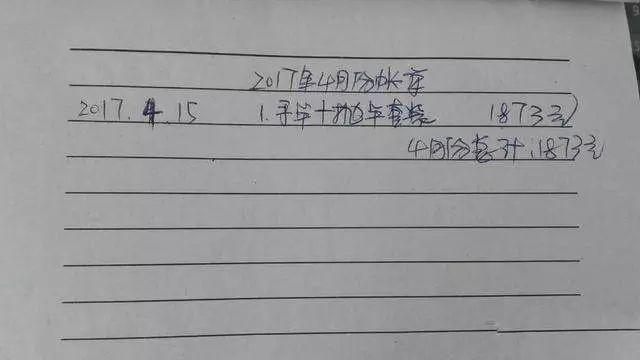 2017年4月份帐单
2017.4.15 1.寻年十 1873元
4月份总计:1873元